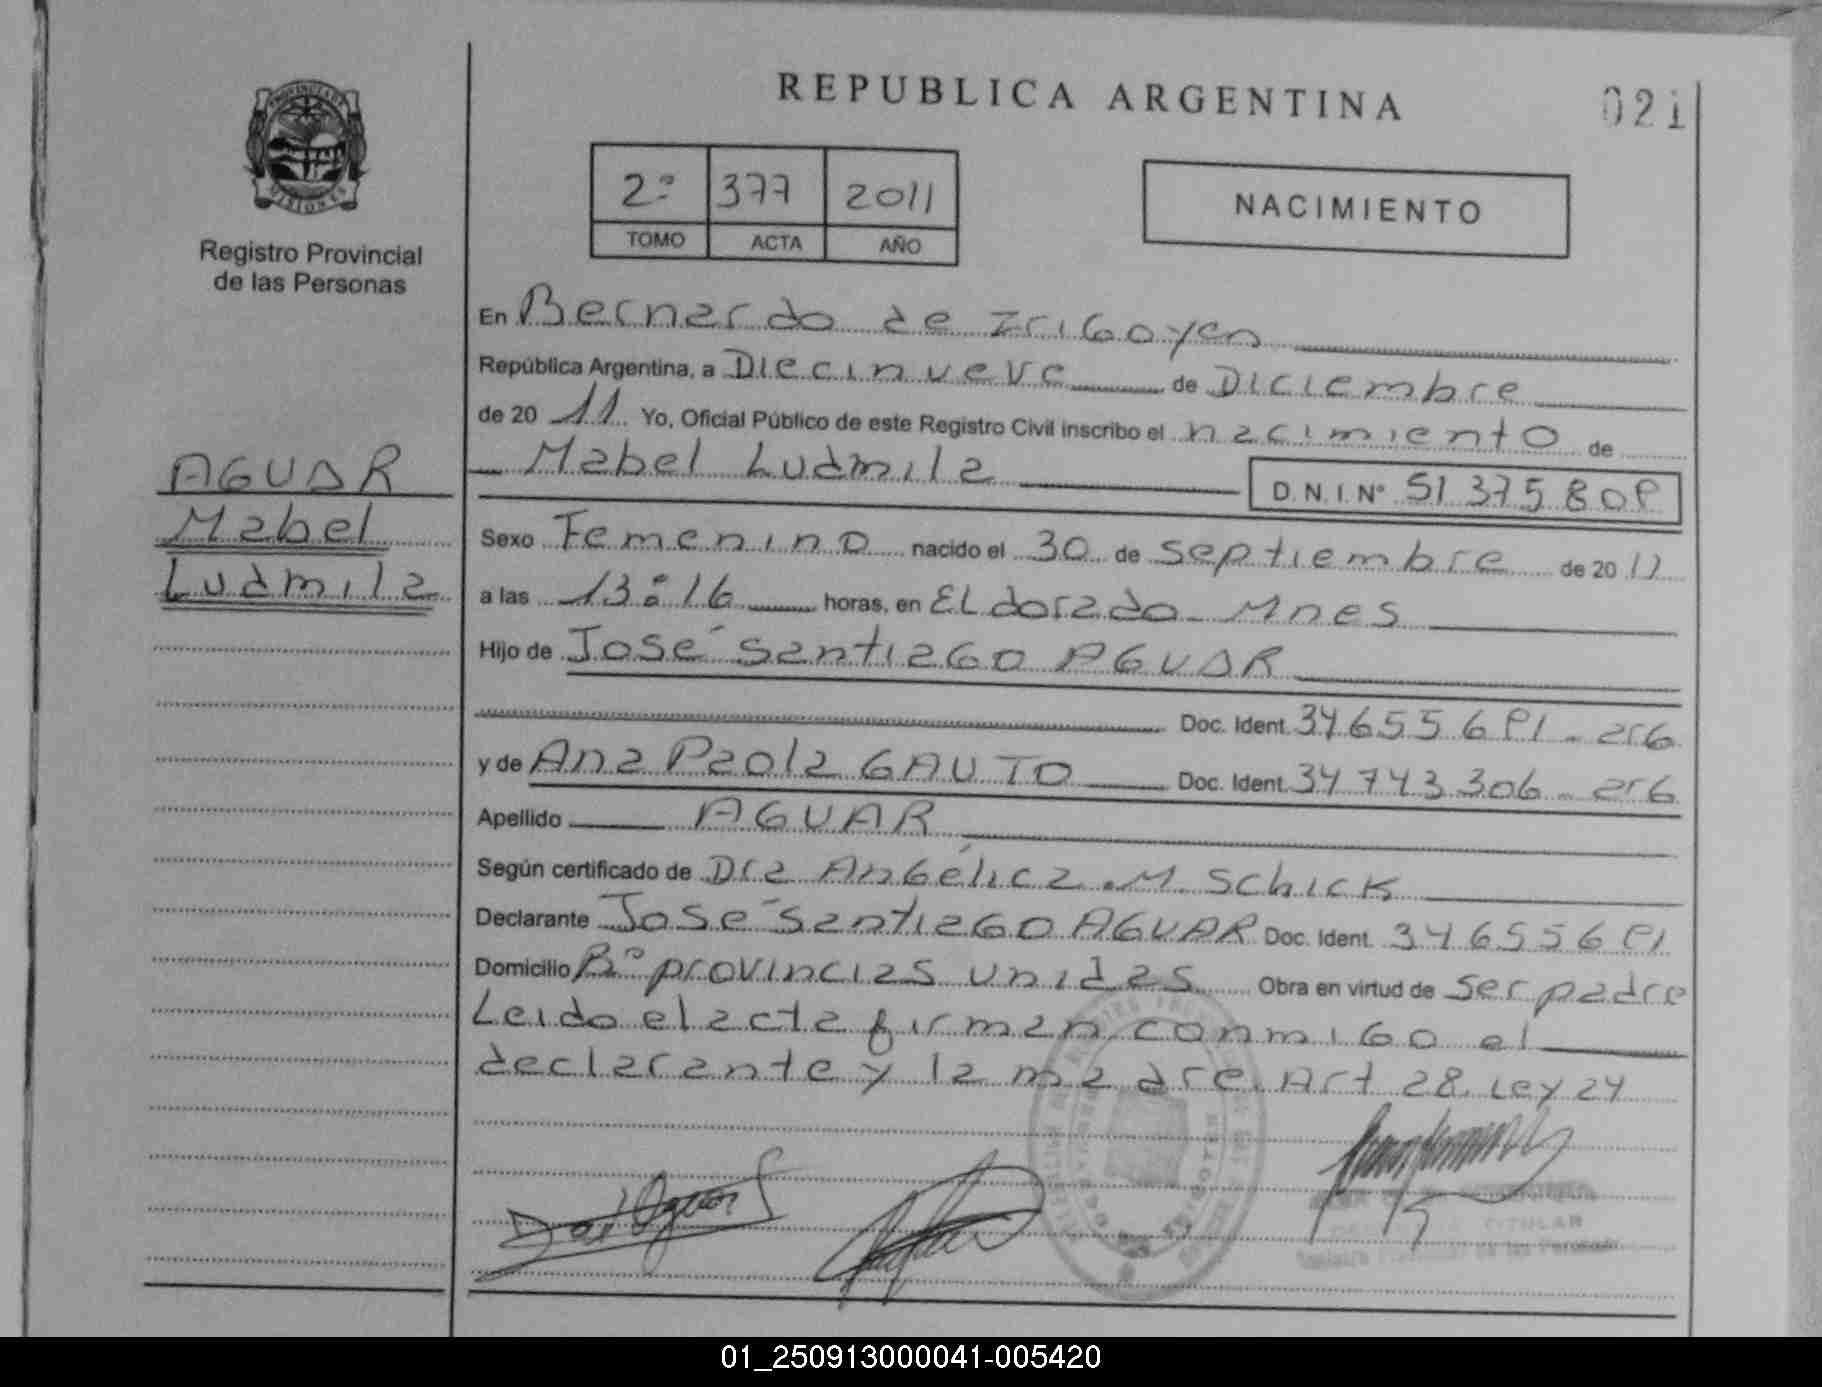 REPUBLICA ARGENTINA
021
PROVINCIA DE
MISIONES
Registro Provincial
de las Personas
2º 377 2011
TOMO ACTA AÑO
NACIMIENTO
En Bernardo de Irigoyen
República Argentina, a Diecinueve de Diciembre
de 20 11 Yo, Oficial Público de este Registro Civil inscribo el nacimiento de
Mabel Ludmila D.N.I.Nº 51 375 809
AGUAR
Mabel
Ludmila
Sexo Femenino nacido el 30 de septiembre de 20 11
a las 13:16 horas, en ELdorado - Mnes
Hijo de José Santiago AGUAR
Doc. Ident. 34 655 691 - arg
y de Ana Paola GAUTO Doc. Ident. 34 743 306 - arg
Apellido AGUAR
Según certificado de Dra Angélica . M. Schick
Declarante José Santiago AGUAR Doc. Ident. 34 655 691
Domicilio Bº provincias unidas Obra en virtud de ser padre
Leido el acta firman conmigo el
declarante y la madre. Art 28 Ley 24
TITULAR
01_250913000041-005420